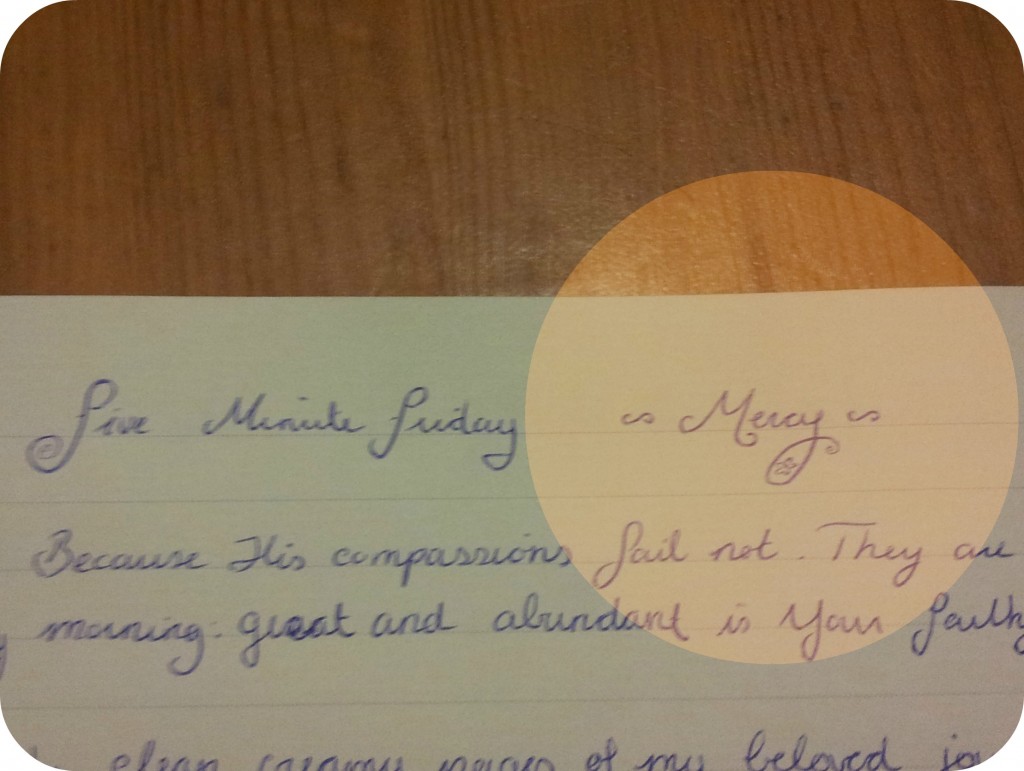 Five Minute Friday ~ Mercy ~
Because His compassions fail not. They are
morning: great and abundant is Your faith
clean creamy pages of my beloved jo